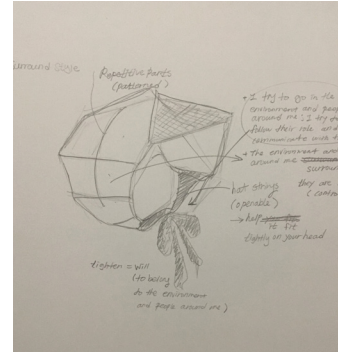 surround
Repetitive Parts
(patterned)
• I try to go in the
environment and peop
around me : I try to
follow their role and
communicate with t
• The environment
around me
surroun
they are
(contro
hat string
(operable)
→ help
it fit
tightly on your head
tighten = will
(to belong
to the environment
and people around me)